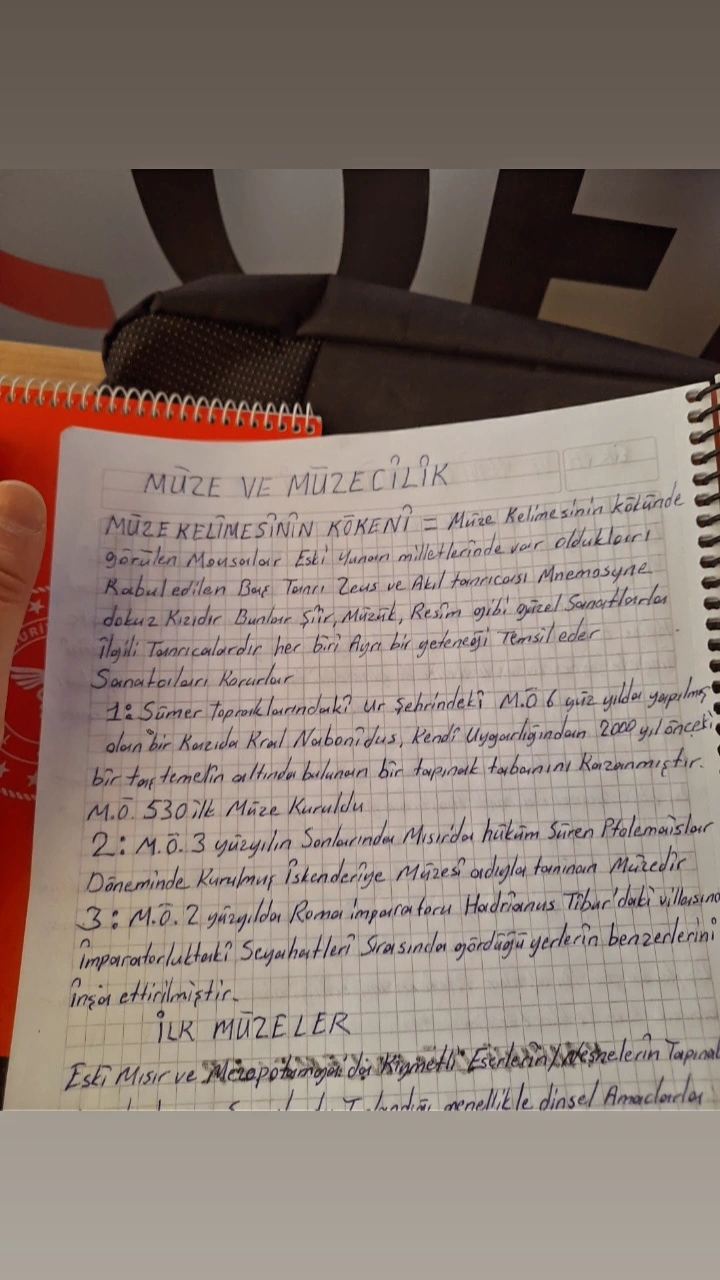 MÜZE VE MÜZECİLİK
MÜZE KELİMESİNİN KÖKENİ = Müze Kelimesinin kökünde
görülen Mousalar Eski Yunan milletlerinde var oldukları
Kabul edilen Baş Tanrı Zeus ve Akıl tanrıcası Mnemosyne
dokuz Kızıdır Bunlar Şiir, Müzük, Resim gibi güzel Sanatlarla
ilgili Tanrıcalardır her biri Ayrı bir yeteneği Temsil eder
Sanatcıları Korurlar
1: Sümer topraklarındaki Ur şehrindeki M.Ö 6 yüz yılda yapılmış
olan bir Kazıda Kral Nabonidus, Kendi Uygarlığından 2000 yıl önceki
bir taş temelin altında bulunan bir tapınak tabanını Kazanmıştır.
M.Ö. 530 ilk Müze Kuruldu
2: M.Ö. 3 yüzyılın Sonlarında Mısır'da hüküm Süren Ptolemaislar
Döneminde Kurulmuş İskenderiye Müzesi adıyla tanınan Müzedir
3: M.Ö. 2 yüzyılda Roma imparatoru Hadrianus Tibur'daki villasına
imparatorluktaki Seyahatleri Sırasında gördüğü yerlerin benzerlerini
inşa ettirilmiştir.
İLK MÜZELER
Eski Mısır ve Mezopotamya'da Kıymetli Eserlerin Tapınak
genellikle dinsel Amaclarla